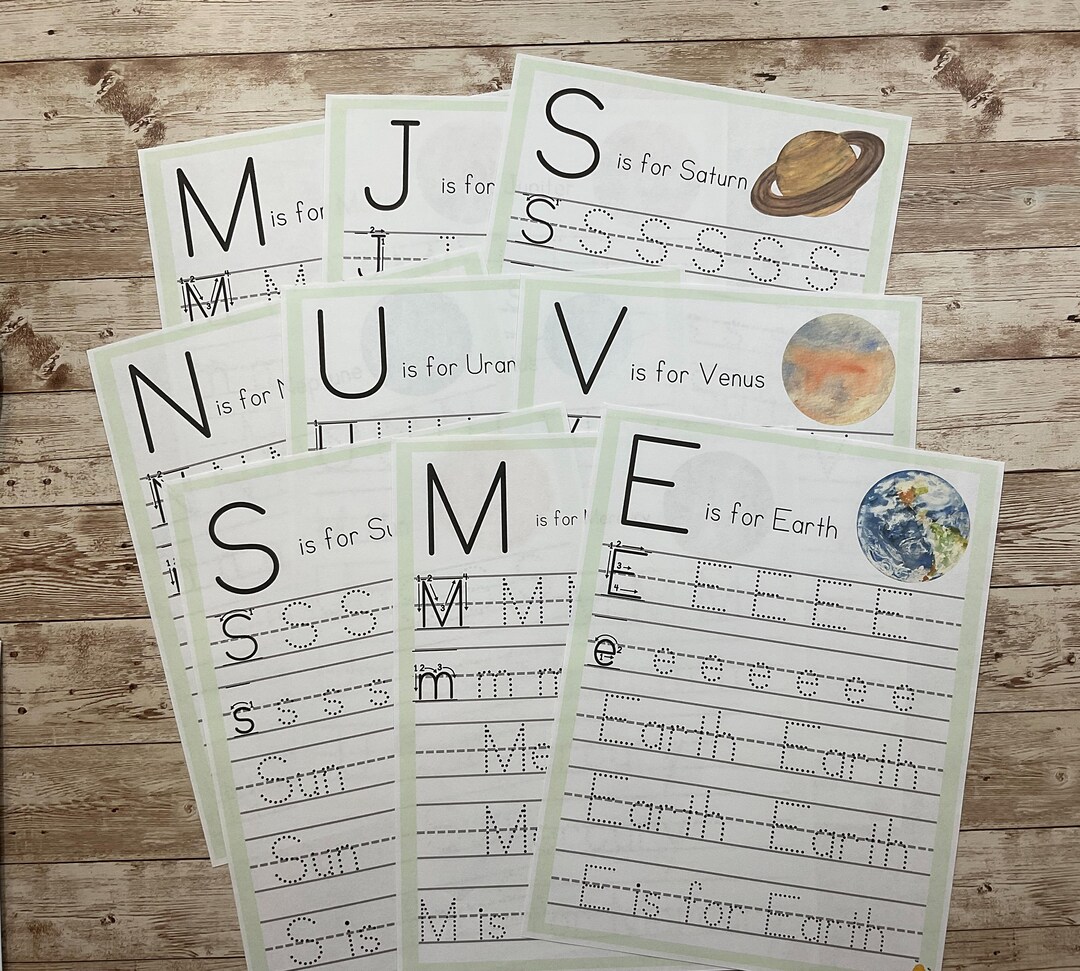 M is for
M M
J is for
J
S is for Saturn
S S S S S S
N is for N
U is for Uran
V is for Venus
S is for Su
S S S
s s s s
Sun
Sun
S is
M is for
M M
m m m
Me
M
M is
E is for Earth
E E E E E
e e e e e e e
Earth Earth
Earth Earth
E is for Earth